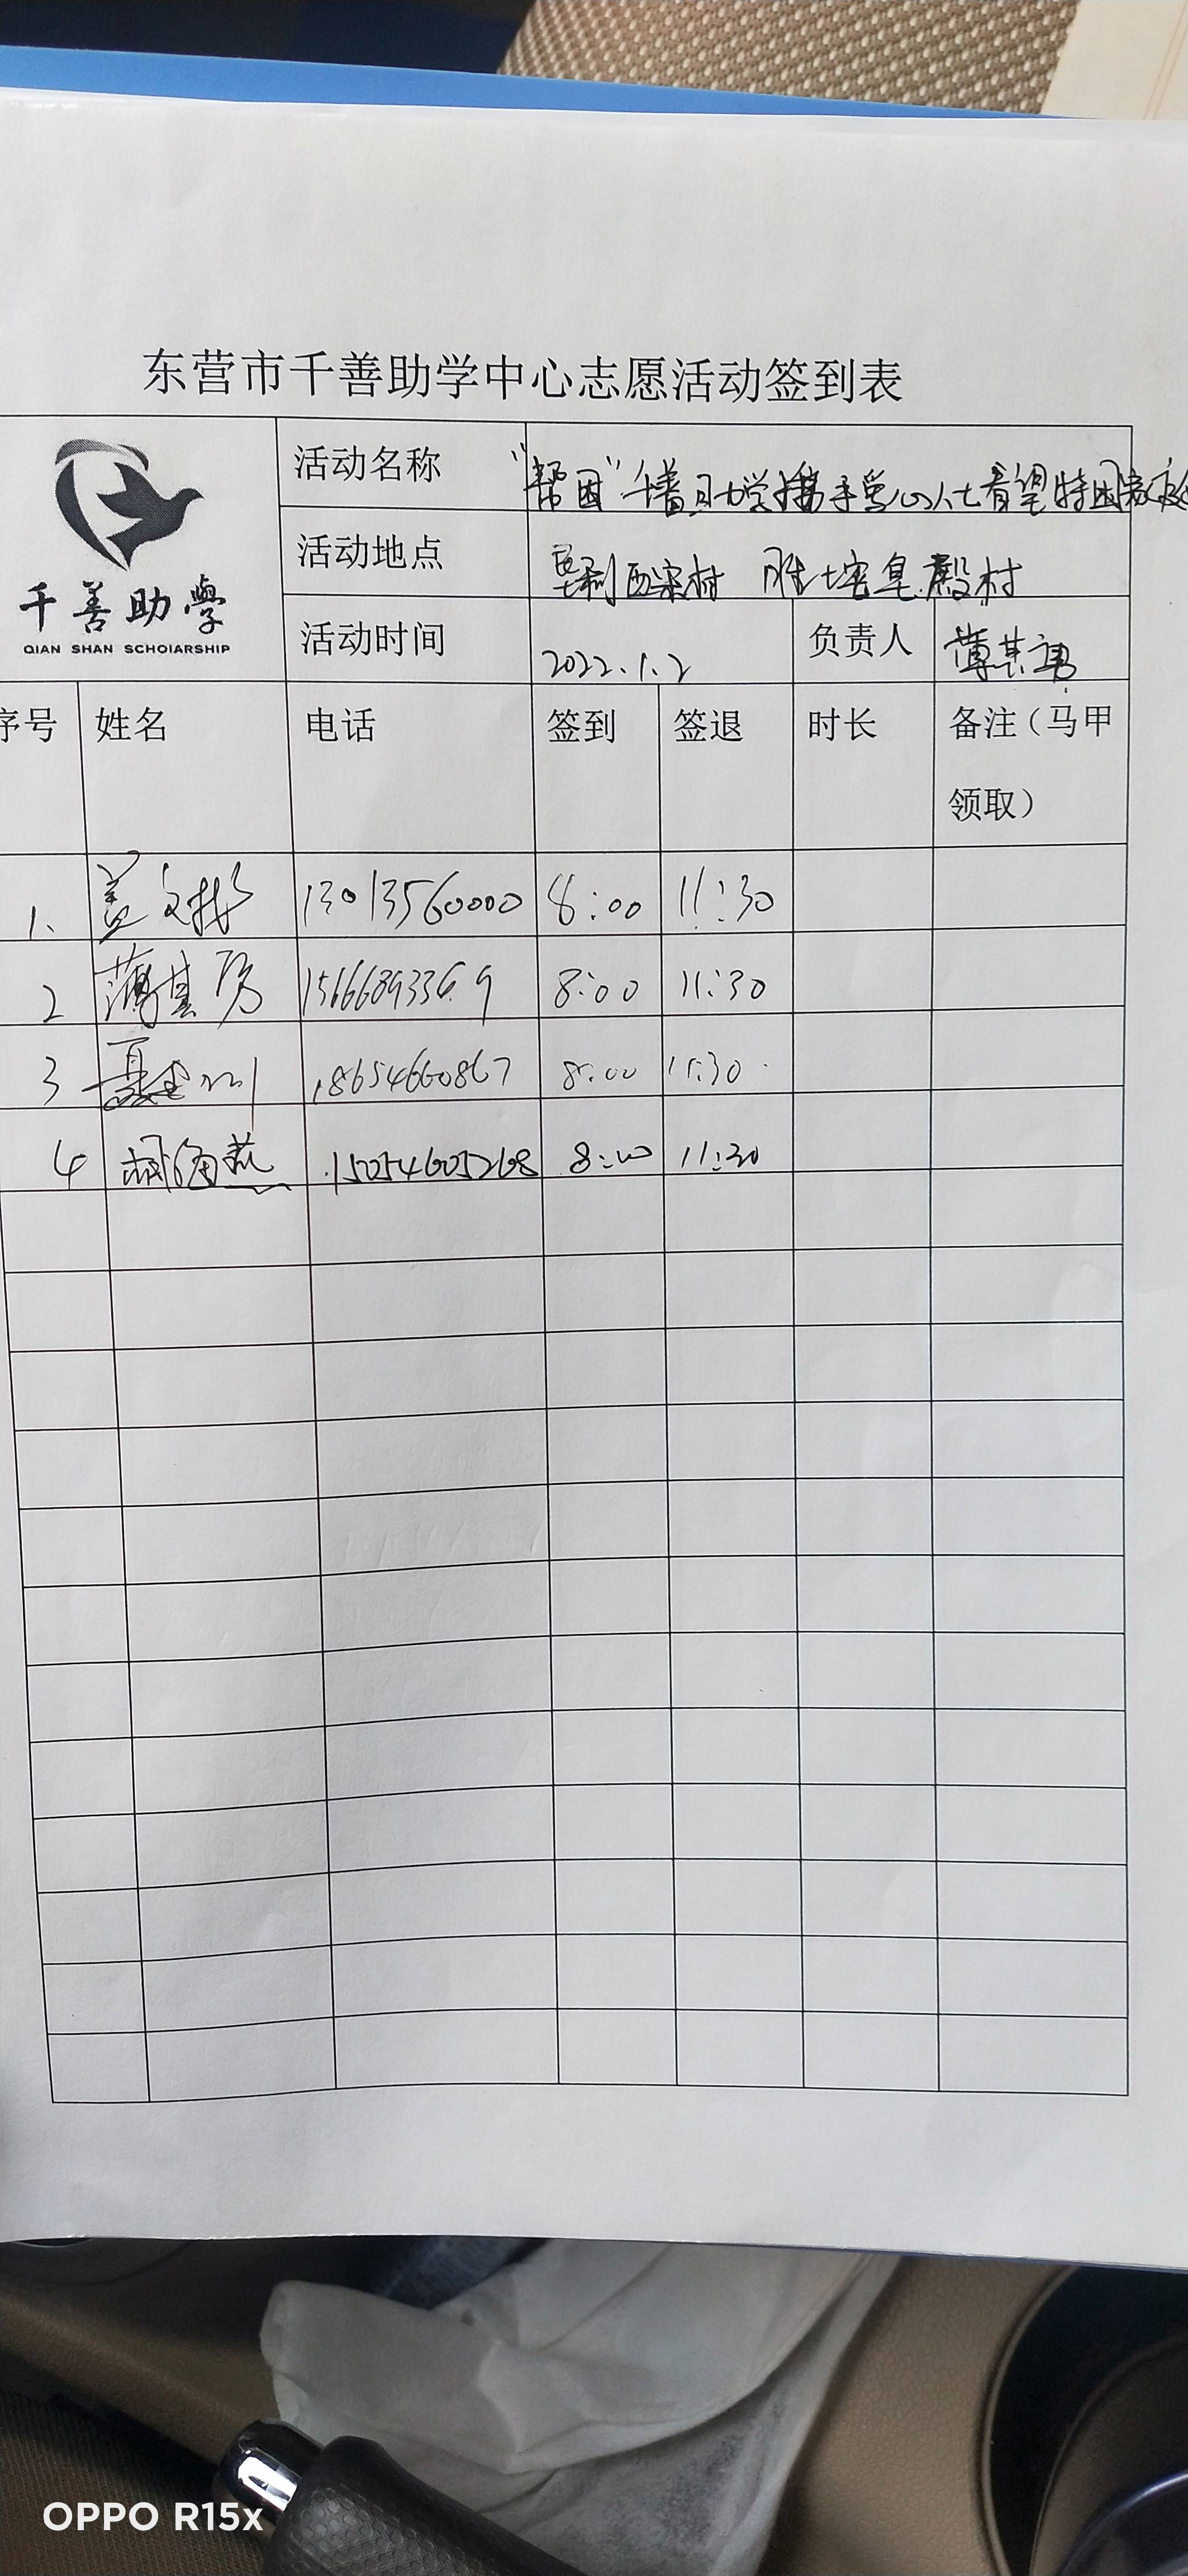 东营市千善助学中心志愿活动签到表
千善助學
QIAN SHAN SCHOIARSHIP
活动名称 "帮困"千善助学携手爱心人士看望特困家庭
活动地点 垦利西宋村 胜坨皂殿村
活动时间 2022.1.2 负责人 薄其
序号 姓名 电话 签到 签退 时长 备注（马甲
领取）
1. 盖文彬 13013560000 8:00 11:30
2 薄其 15666893369 8:00 11:30
3 聂 18654660867 8:00 11:30
4 胡海燕 15054605268 8:00 11:30
OPPO R15x